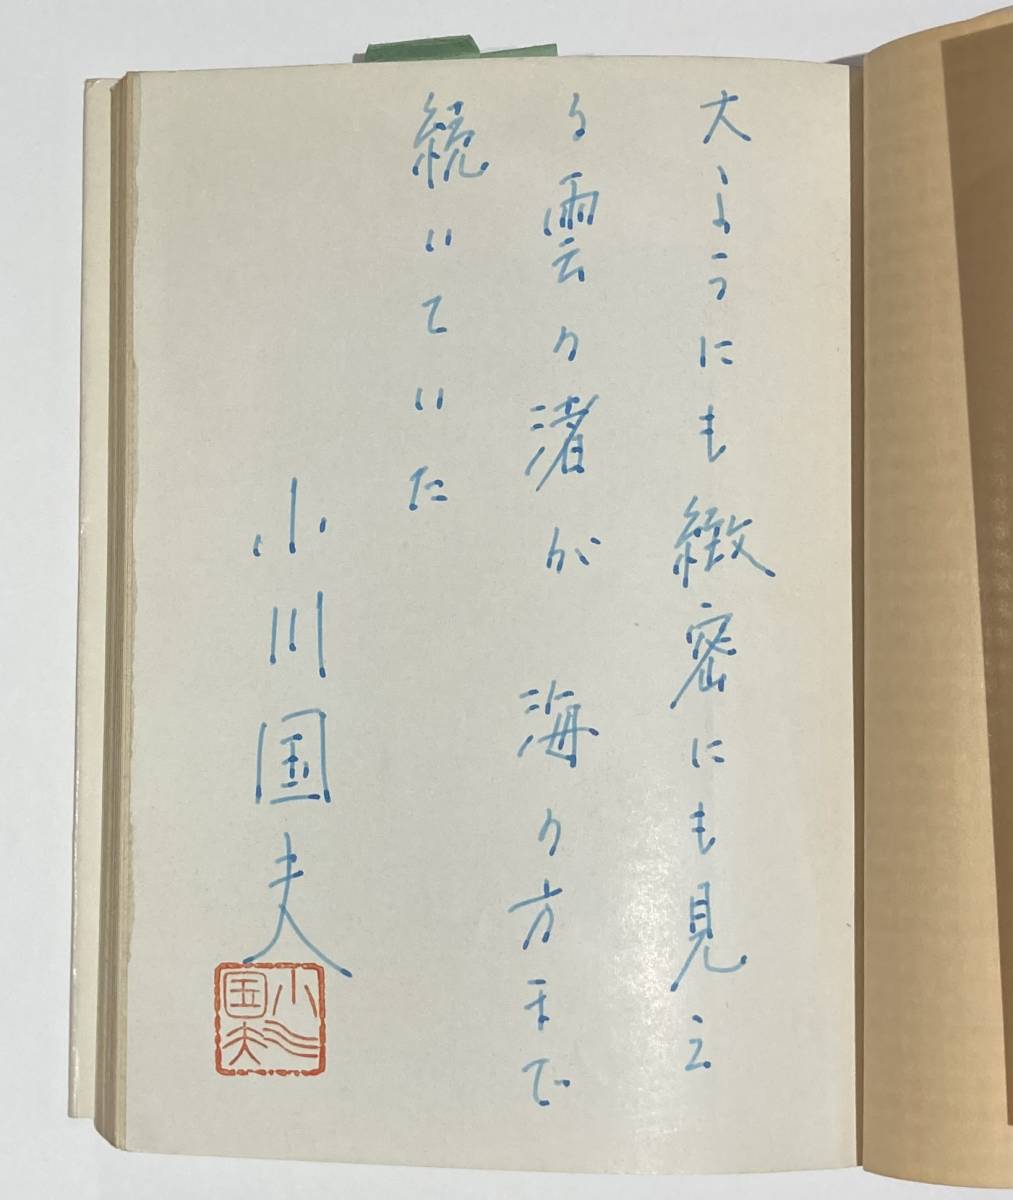 大ようにも緻密にも見え
る雲の渚が 海の方まで
続いていた
小川国夫
小川
国夫